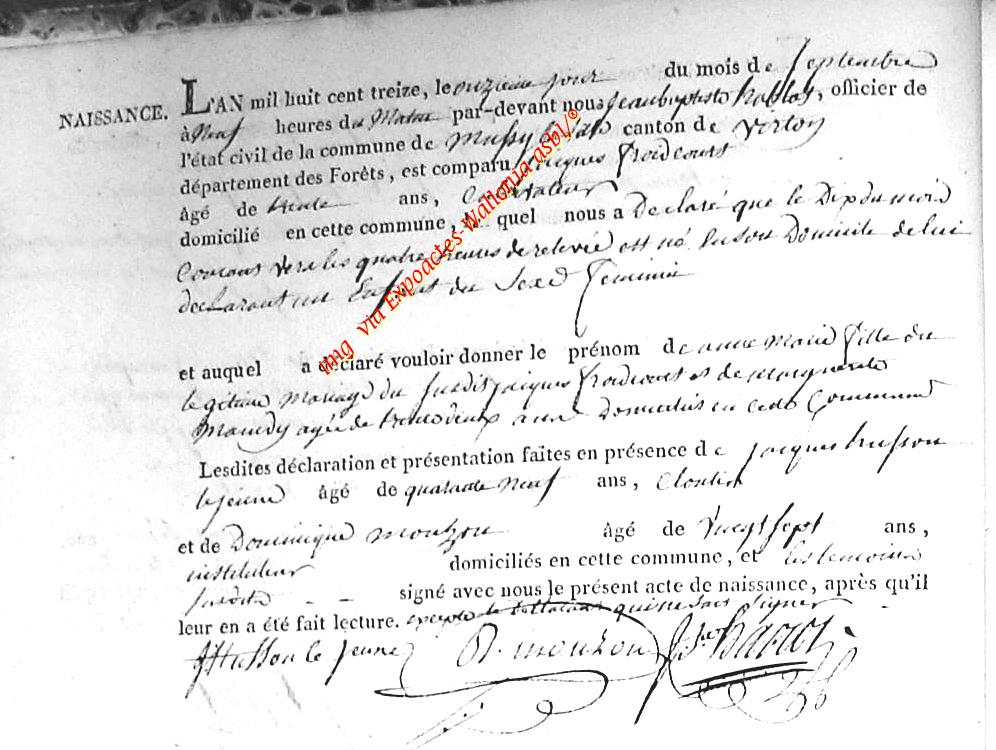 NAISSANCE.
L'AN mil huit cent treize, le onzieme jour du mois de Septembre
à Neuf heures du Matin par-devant nous Jean baptiste, officier de
l'état civil de la commune de Mussy canton de Virton
département des Forêts, est comparu Jacques froidcourt
âgé de trente ans, Cultivateur
domicilié en cette commune, le quel nous a Declaré que le Dix du mois
Courant vers les quatre heures de relevée est né en son Domicile de lui
declarant un Enfant du Sexe feminin
et auquel a déclaré vouloir donner le prénom de anne Marie fille du
legitime mariage du susdit jacques froidcourt et de marguerite
agée de trente deux ans Domiciliés en cette Commune
Lesdites déclaration et présentation faites en présence de jacques husson
le jeune âgé de quarante neuf ans, Cloutier
et de Dominique mouzon âgé de Vingt sept ans,
instituteur domiciliés en cette commune, et les temoins
susdits - - signé avec nous le présent acte de naissance, après qu'il
leur en a été fait lecture. excepté le declarant qui ne sais signer
J Husson le jeune D. mouzon
img via Expoactes Wallonia asbl/©